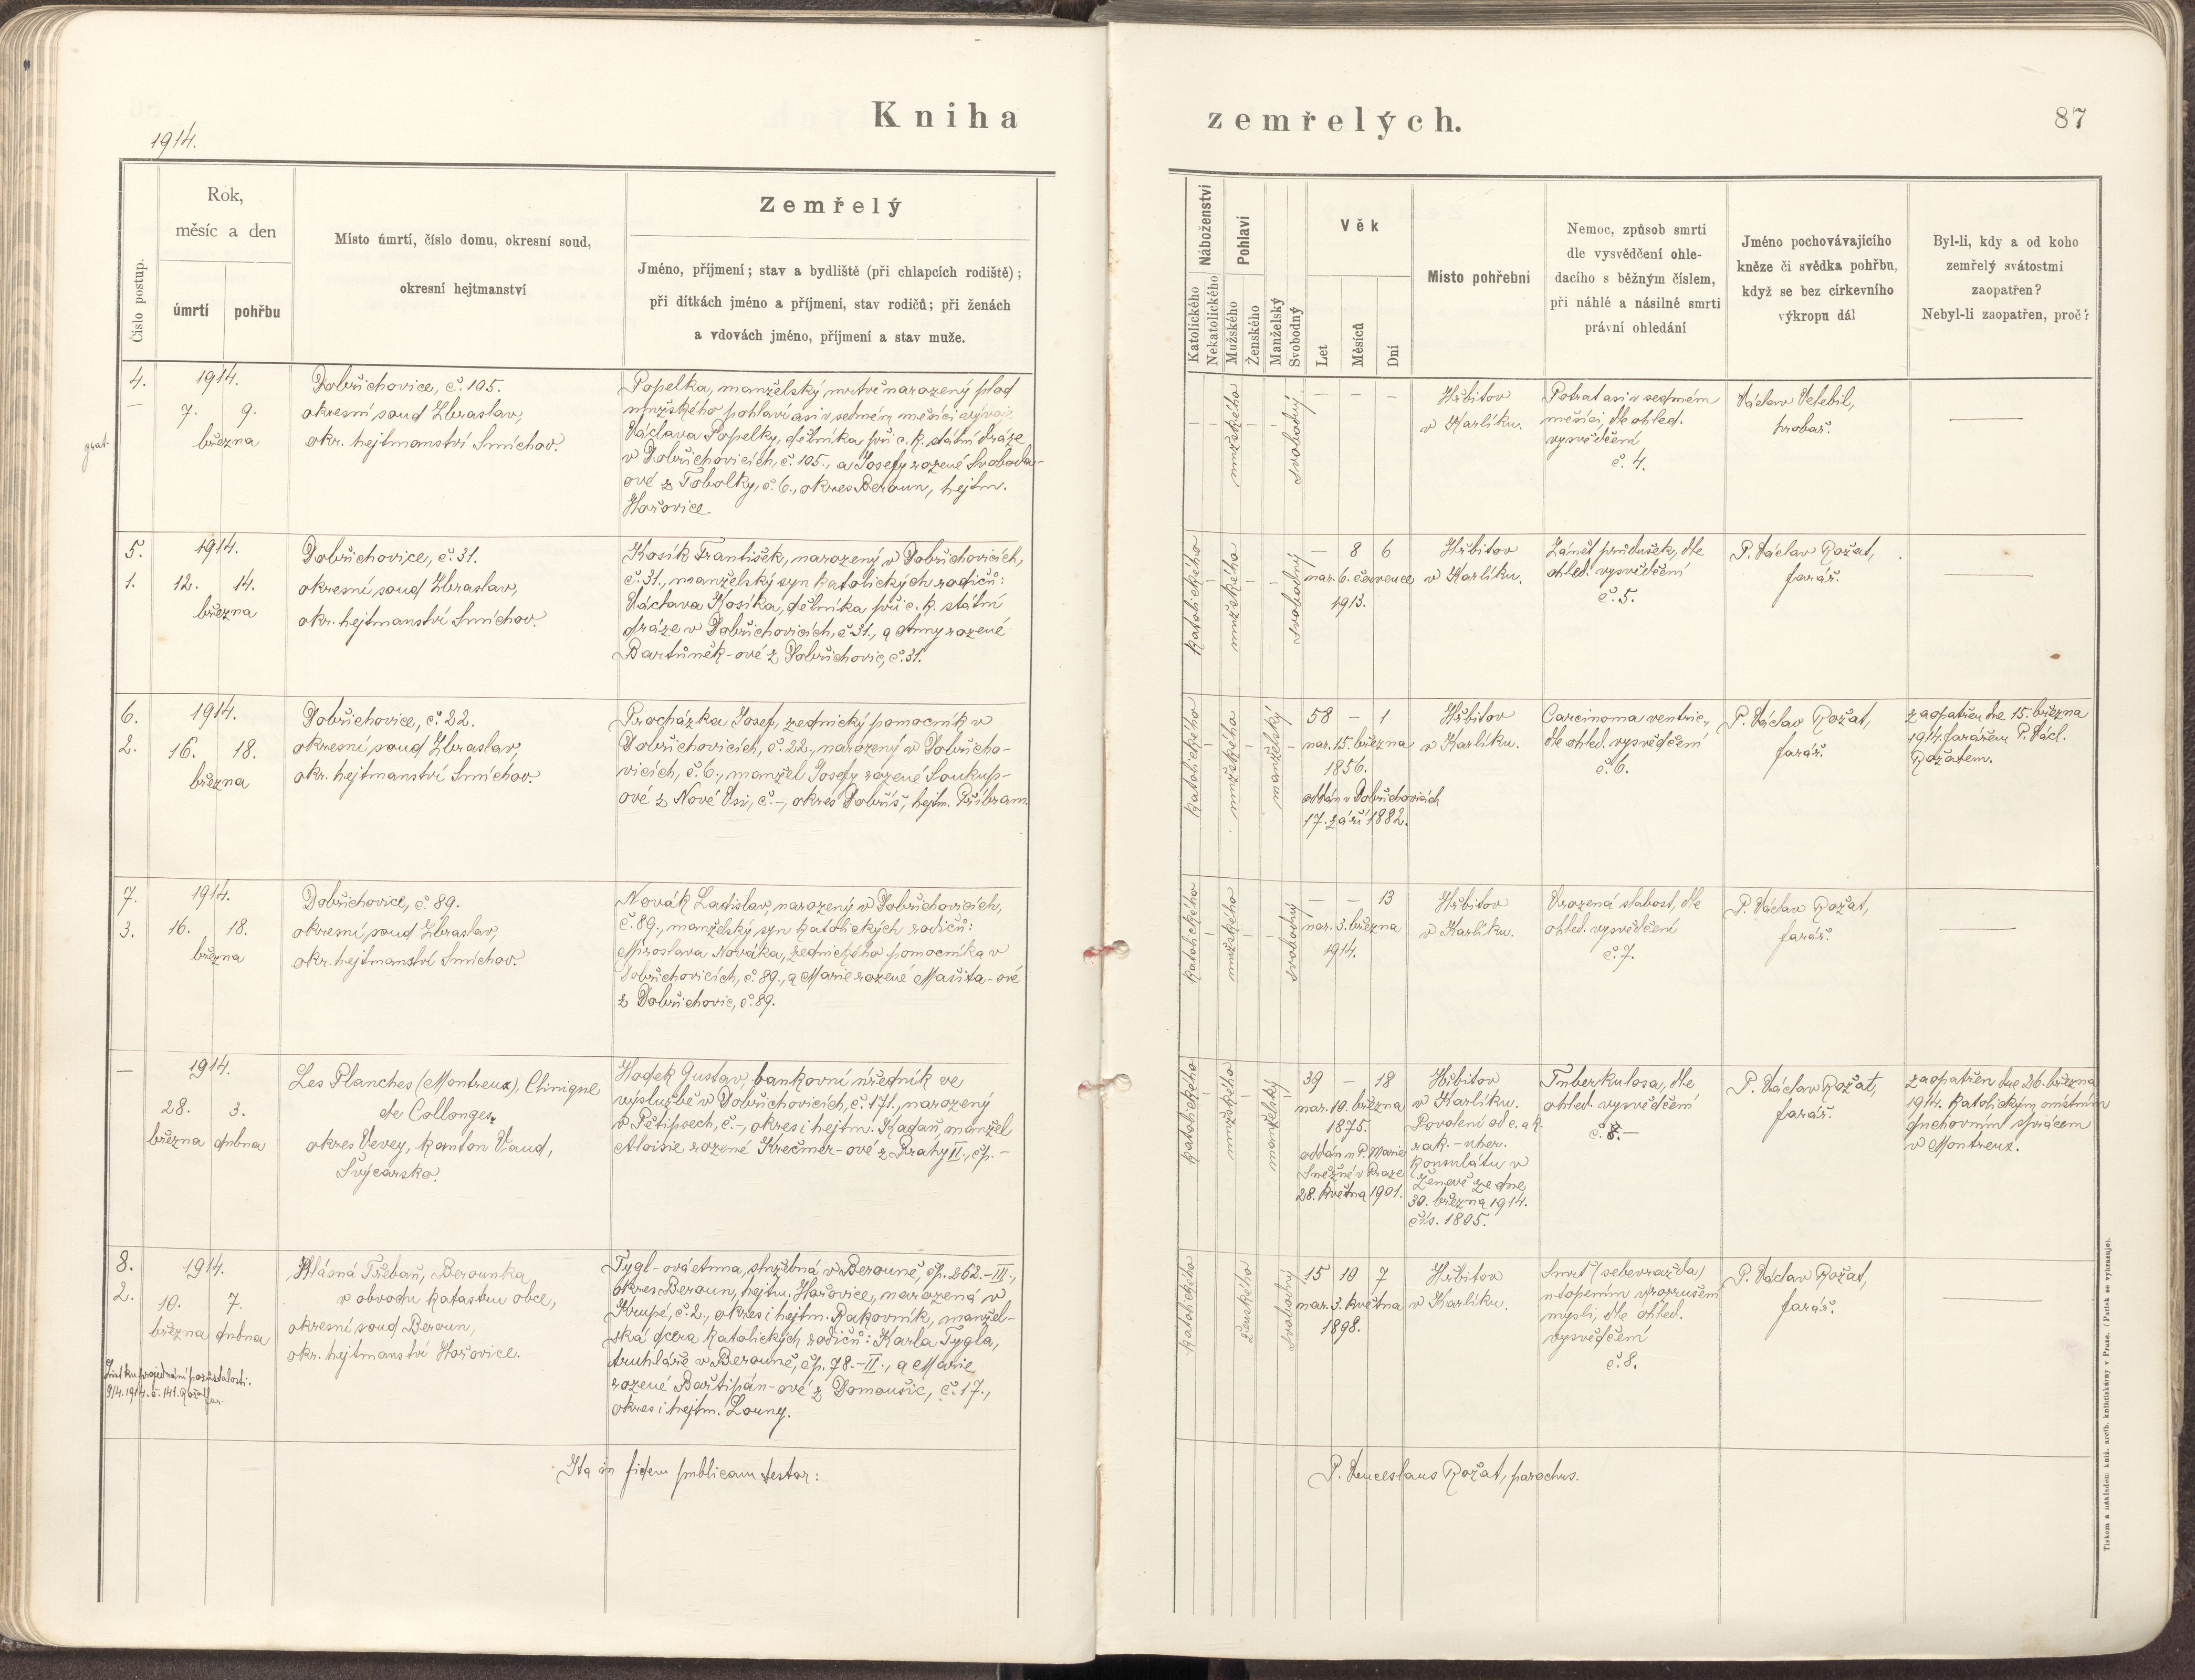 Kniha
zemřelých.
87
1914.
Číslo postup.
Rok,
měsíc a den
úmrtí
pohřbu
Místo úmrtí, číslo domu, okresní soud,
okresní hejtmanství
Zemřelý
Jméno, příjmení; stav a bydliště (při chlapcích rodiště);
při dítkách jméno a příjmení, stav rodičů; při ženách
a vdovách jméno, příjmení a stav muže.
Náboženství
Katolického
Nekatolického
Pohlaví
Mužského
Ženského
Manželský
Svobodný
Věk
Let
Měsíců
Dní
Místo pohřební
Nemoc, způsob smrti
dle vysvědčení ohle-
dacího s běžným číslem,
při náhlé a násilné smrti
právní ohledání
Jméno pochovávajícího
kněze či svědka pohřbu,
když se bez církevního
výkropu dál
Byl-li, kdy a od koho
zemřelý svátostmi
zaopatřen?
Nebyl-li zaopatřen, proč?
4.
—
1914.
7. 9.
března
Dobřichovice, č. 105.
okresní soud Zbraslav,
okr. hejtmanství Smíchov.
Popelka, manželský mrtvě narozený plod
mužského pohlaví asi v sedmém měsíci vývoje
Václava Popelky, dělníka při c. k. státní dráze
v Dobřichovicích, č. 105., a Josefy rozené Svoboda-
ové z Tobolky, č. 6., okres Beroun, hejtm.
Hořovice.
mužského
svobodný
— — —
Hřbitov
v Karlíku.
Potrat asi v sedmém
měsíci, dle ohled.
vysvědčení
č. 4.
Václav Vetebil,
hrobař.
—
5.
1.
1914.
12. 14.
března
Dobřichovice, č. 31.
okresní soud Zbraslav,
okr. hejtmanství Smíchov.
Kosík František, narozený v Dobřichovicích,
č. 31., manželský syn katolických rodičů:
Václava Kosíka, dělníka při c. k. státní
dráze v Dobřichovicích, č. 31., a Anny rozené
Bartůněk-ové z Dobřichovic, č. 31.
katolického
mužského
svobodný
— 8 6
nar. 6. července
1913.
Hřbitov
v Karlíku.
Zánět průdušek, dle
ohled. vysvědčení
č. 5.
P. Václav Rožat,
farář.
—
6.
2.
1914.
16. 18.
března
Dobřichovice, č. 22.
okresní soud Zbraslav,
okr. hejtmanství Smíchov.
Procházka Josef, zednický pomocník v
Dobřichovicích, č. 22., narozený v Dobřicho-
vicích, č. 6., manžel Josefy rozené Soukup-
ové z Nové Vsi, č. -, okres Dobříš, hejtm. Příbram.
katolického
mužského
manželský
58 — 1
nar. 15. března
1856.
oddán v Dobřichovicích
17. září 1882.
Hřbitov
v Karlíku.
Carcinoma ventric.,
dle ohled. vysvědčení
č. 6.
P. Václav Rožat,
farář.
zaopatřen dne 15. března
1914. farářem P. Václ.
Rožatem.
7.
3.
1914.
16. 18.
března
Dobřichovice, č. 89.
okresní soud Zbraslav,
okr. hejtmanství Smíchov.
Novák Ladislav, narozený v Dobřichovicích,
č. 89., manželský syn katolických rodičů:
Miroslava Nováka, zednického pomocníka v
Dobřichovicích, č. 89., a Marie rozené Mašita-ové
z Dobřichovic, č. 89.
katolického
mužského
svobodný
— — 13
nar. 3. března
1914.
Hřbitov
v Karlíku.
Vrozená slabost, dle
ohled. vysvědčení
č. 7.
P. Václav Rožat,
farář.
—
—
1914.
28. 3.
března dubna
Les Planches (Montreux), Clinique
de Collonges,
okres Vevey, kanton Vaud,
Švýcarsko.
Hodek Gustav, bankovní úředník ve
výslužbě v Dobřichovicích, č. 171., narozený
v Pětipsech, č. -, okres i hejtm. Kadaň, manžel
Aloisie rozené Krečmer-ové z Prahy II., čp. -
katolického
mužského
manželský
39 — 18
nar. 10. března
1875.
oddán u P. Marie
Sněžné v Praze
28. května 1901.
Hřbitov
v Karlíku.
Povolení od c. a k.
rak.-uher.
konsulátu v
Ženevě ze dne
30. března 1914.
čís. 1805.
Tuberkulosa, dle
ohled. vysvědčení
č. 8. —
P. Václav Rožat,
farář.
zaopatřen dne 26. března
1914. katolickým místním
duchovním správcem
v Montreux.
8.
2.
1914.
10. 7.
března dubna
Hlásná Třebaň, Berounka
v obvodu katastru obce,
okresní soud Beroun,
okr. hejtmanství Hořovice.
List ku projednání pozůstalosti.
9/4. 1914. č. 141. Rožat far.
Tygl-ová Anna, služebná v Berouně, čp. 262.-III.,
okres Beroun, hejtm. Hořovice, narozená v
Krupé, č. 2., okres i hejtm. Rakovník, manžel-
ská dcera katolických rodičů: Karla Tygla,
truhláře v Berouně, čp. 78.-II., a Marie
rozené Bartipán-ové z Domoušic, č. 17.,
okres i hejtm. Louny.
katolického
ženského
svobodný
15 10 7
nar. 3. května
1898.
Hřbitov
v Karlíku.
Smrt (sebevražda)
utopením v rozrušení
mysli, dle ohled.
vysvědčení
č. 8.
P. Václav Rožat,
farář.
—
Ita in fidem publicam testor:
P. Venceslaus Rožat, parochus.
Tiskem a nákladem kníž. arcib. knihtiskárny v Praze. (Patisk se vyhrazuje).